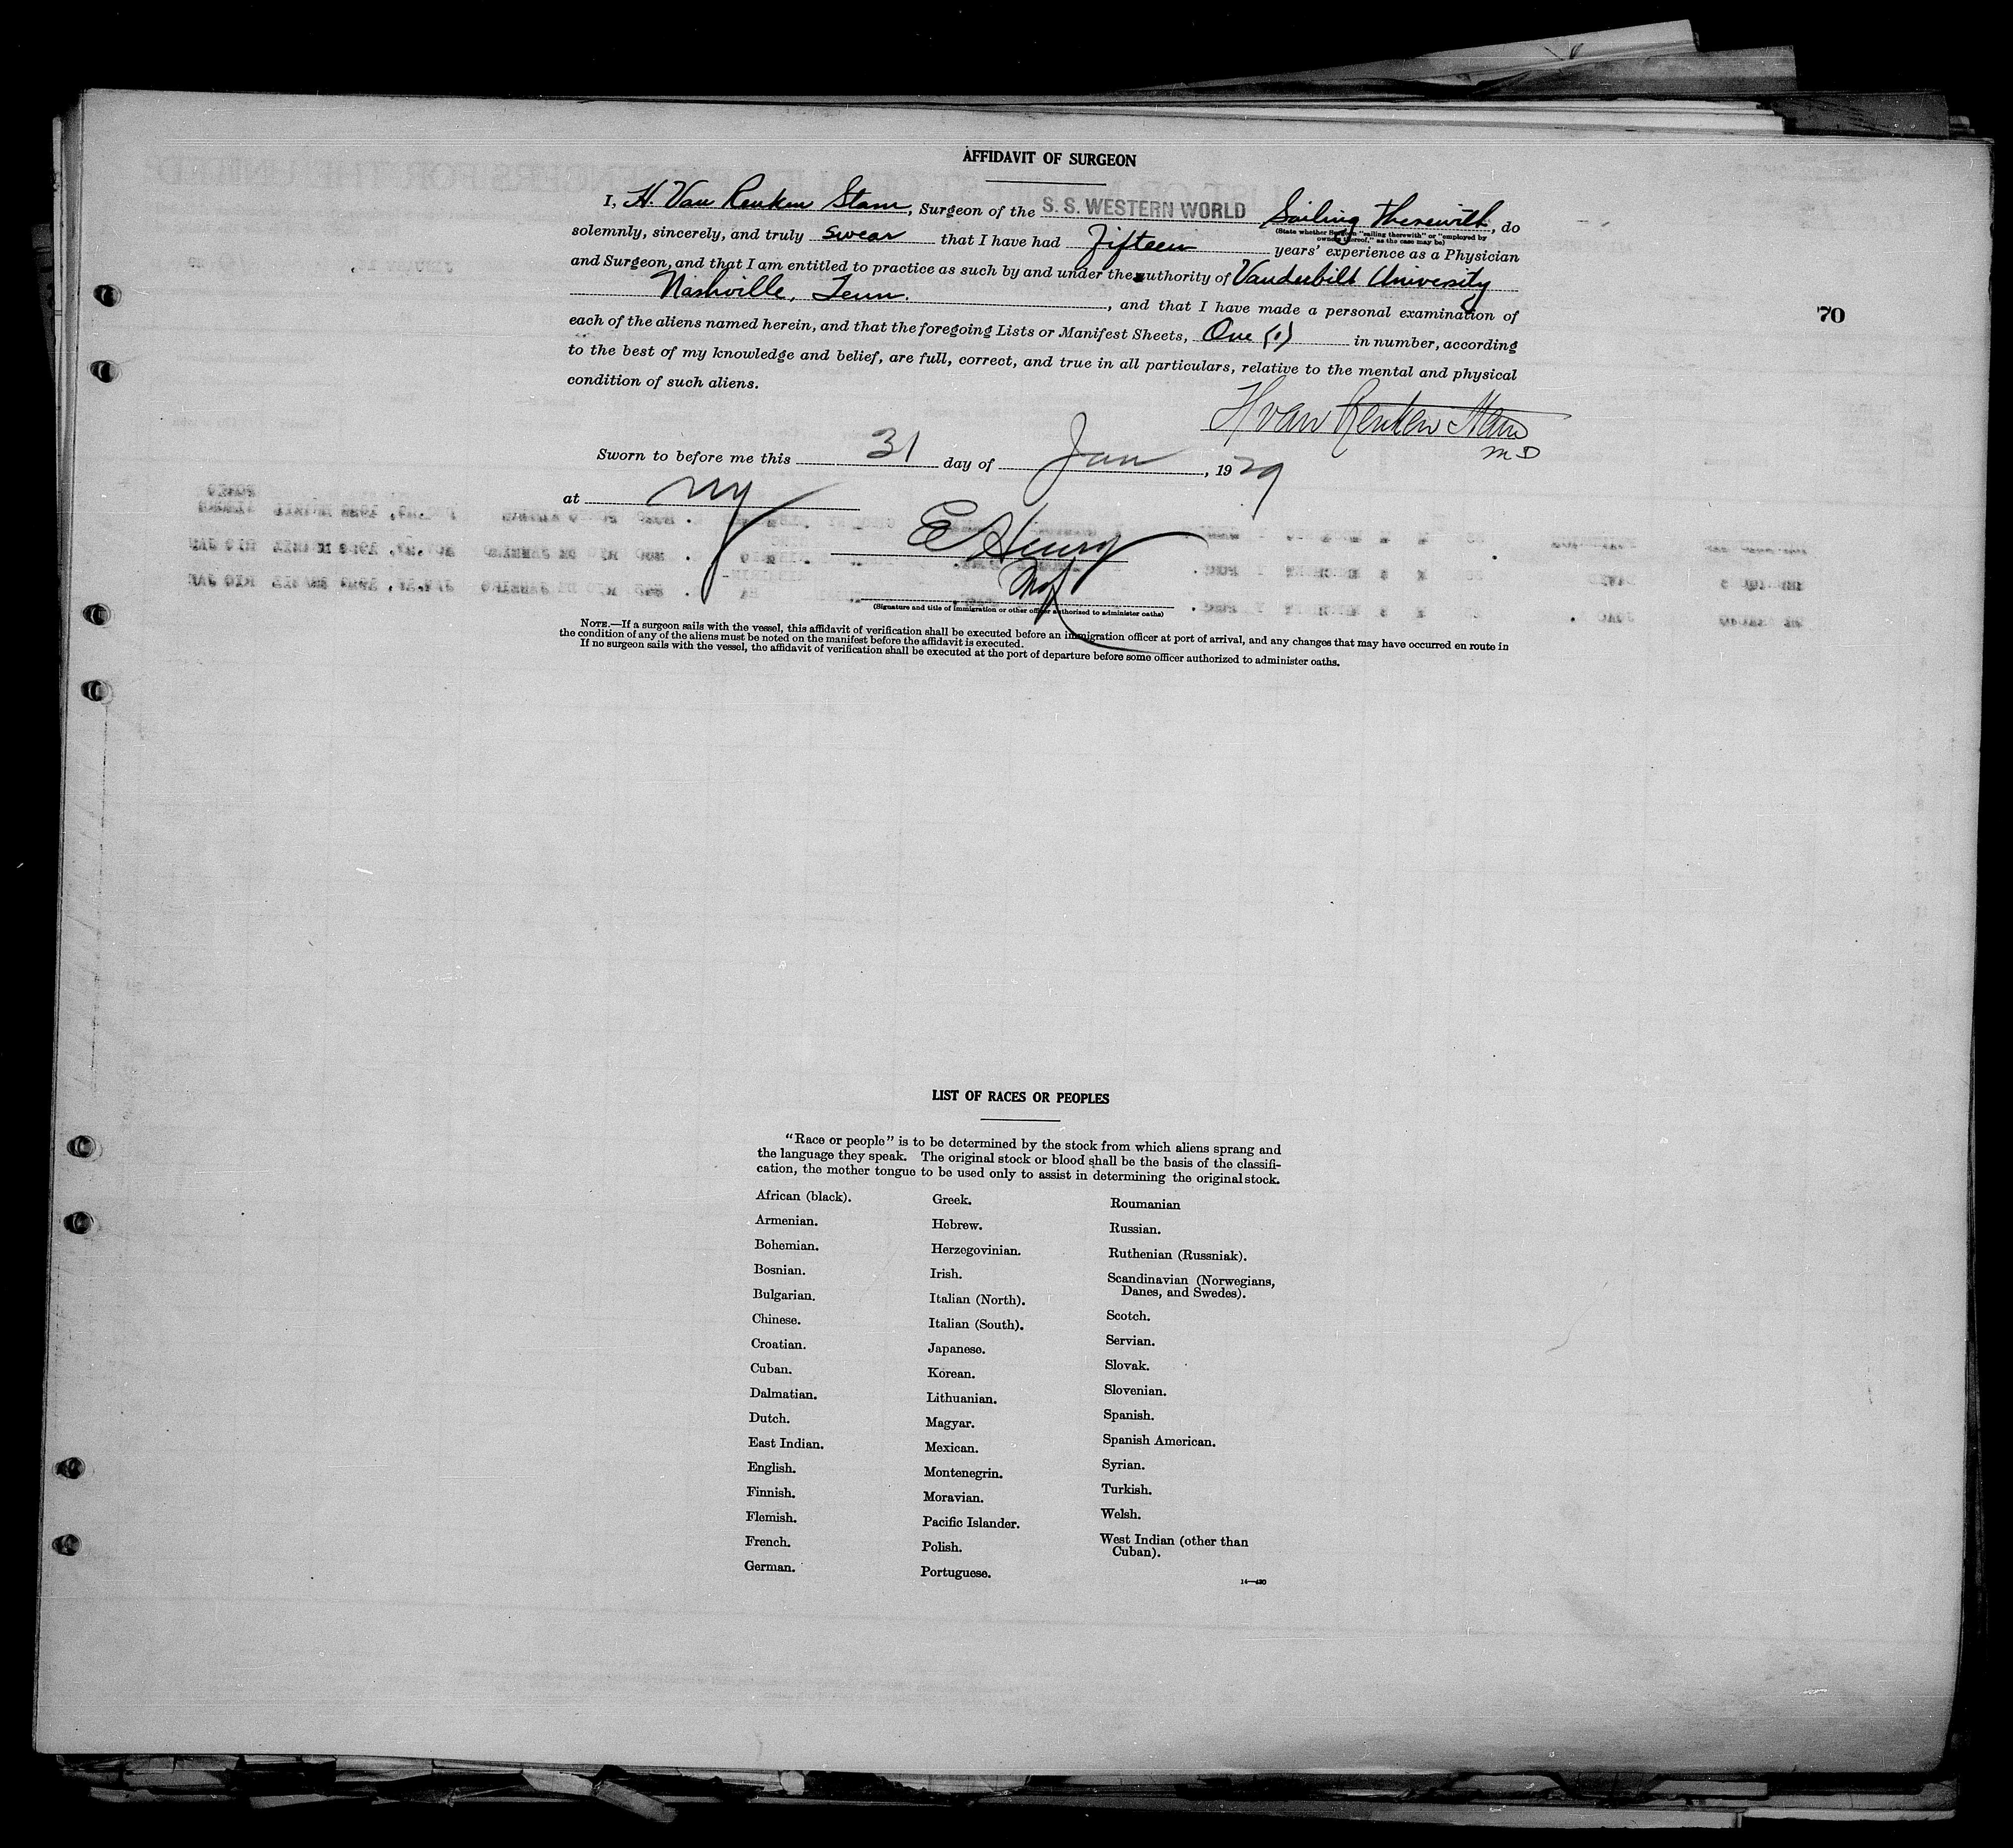 AFFIDAVIT OF SURGEON
I, H. Van Renken Stam, Surgeon of the S. S. WESTERN WORLD Sailing Therewith, do
(State whether Surgeon "sailing therewith" or "employed by owners thereof," as the case may be)
solemnly, sincerely, and truly swear that I have had Fifteen years' experience as a Physician
and Surgeon, and that I am entitled to practice as such by and under the authority of Vanderbilt University
Nashville, Tenn., and that I have made a personal examination of
70
each of the aliens named herein, and that the foregoing Lists or Manifest Sheets, One (1) in number, according
to the best of my knowledge and belief, are full, correct, and true in all particulars, relative to the mental and physical
condition of such aliens.
H van Renken Stam
M D
Sworn to before me this 31 day of Jan, 1929
at NY
E Henry
(Signature and title of immigration or other officer authorized to administer oaths)
NOTE.—If a surgeon sails with the vessel, this affidavit of verification shall be executed before an immigration officer at port of arrival, and any changes that may have occurred en route in
the condition of any of the aliens must be noted on the manifest before the affidavit is executed.
If no surgeon sails with the vessel, the affidavit of verification shall be executed at the port of departure before some officer authorized to administer oaths.
LIST OF RACES OR PEOPLES
"Race or people" is to be determined by the stock from which aliens sprang and
the language they speak. The original stock or blood shall be the basis of the classifi-
cation, the mother tongue to be used only to assist in determining the original stock.
African (black).
Armenian.
Bohemian.
Bosnian.
Bulgarian.
Chinese.
Croatian.
Cuban.
Dalmatian.
Dutch.
East Indian.
English.
Finnish.
Flemish.
French.
German.
Greek.
Hebrew.
Herzegovinian.
Irish.
Italian (North).
Italian (South).
Japanese.
Korean.
Lithuanian.
Magyar.
Mexican.
Montenegrin.
Moravian.
Pacific Islander.
Polish.
Portuguese.
Roumanian
Russian.
Ruthenian (Russniak).
Scandinavian (Norwegians,
Danes, and Swedes).
Scotch.
Servian.
Slovak.
Slovenian.
Spanish.
Spanish American.
Syrian.
Turkish.
Welsh.
West Indian (other than
Cuban).
14—430